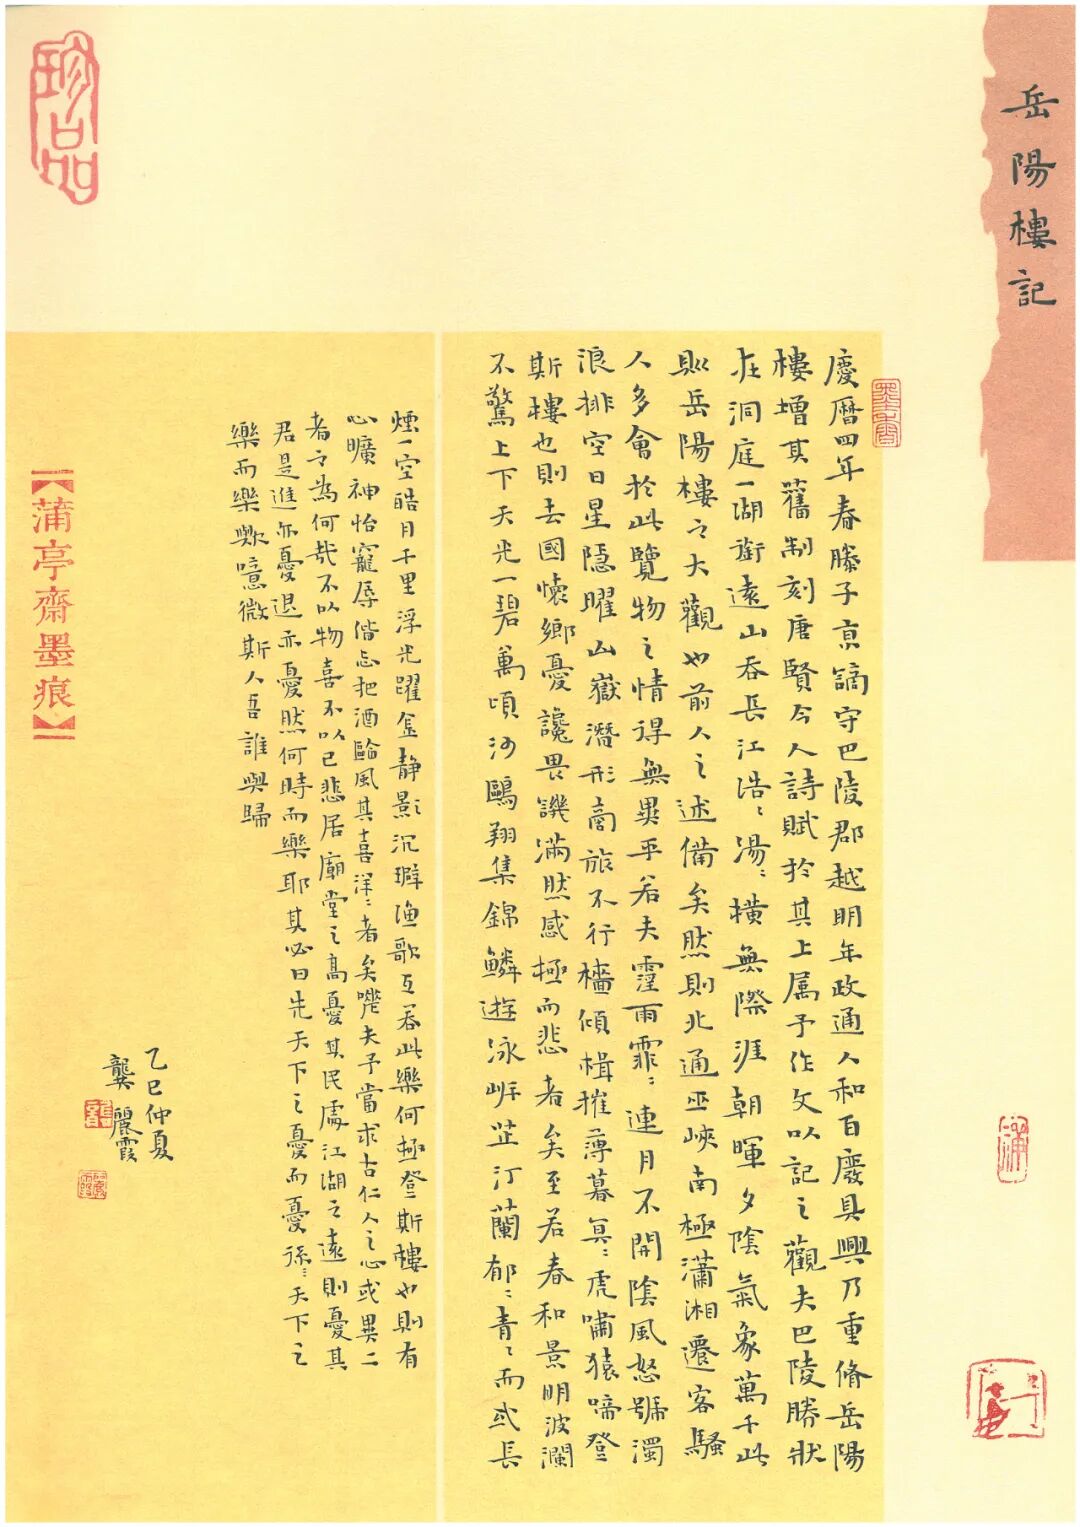 岳陽樓記
慶曆四年春滕子京謫守巴陵郡越明年政通人和百廢具興乃重脩岳陽
樓增其舊制刻唐賢今人詩賦於其上属予作文以記之觀夫巴陵勝狀
在洞庭一湖銜遠山吞長江浩〻湯〻橫無際涯朝暉夕陰氣象萬千此
則岳陽樓之大觀也前人之述備矣然則北通巫峽南極瀟湘遷客騷
人多會於此覽物之情得無異乎若夫霪雨霏〻連月不開陰風怒號濁
浪排空日星隱曜山嶽潛形商旅不行檣傾楫摧薄暮冥〻虎嘯猿啼登
斯樓也則去國懷鄉憂讒畏譏滿然感極而悲者矣至若春和景明波瀾
不驚上下天光一碧萬頃沙鷗翔集錦鱗遊泳岸芷汀蘭郁〻青〻而或長
煙一空皓月千里浮光躍金靜影沉璧漁歌互答此樂何極登斯樓也則有
心曠神怡寵辱偕忘把酒臨風其喜洋〻者矣嗟夫予嘗求古仁人之心或異二
者之為何哉不以物喜不以己悲居廟堂之高憂其民處江湖之遠則憂其
君是進亦憂退亦憂然何時而樂耶其必曰先天下之憂而憂後〻天下之
樂而樂歟噫微斯人吾誰與歸
乙巳仲夏
龔麗霞
【蒲亭齋墨痕】
珍品